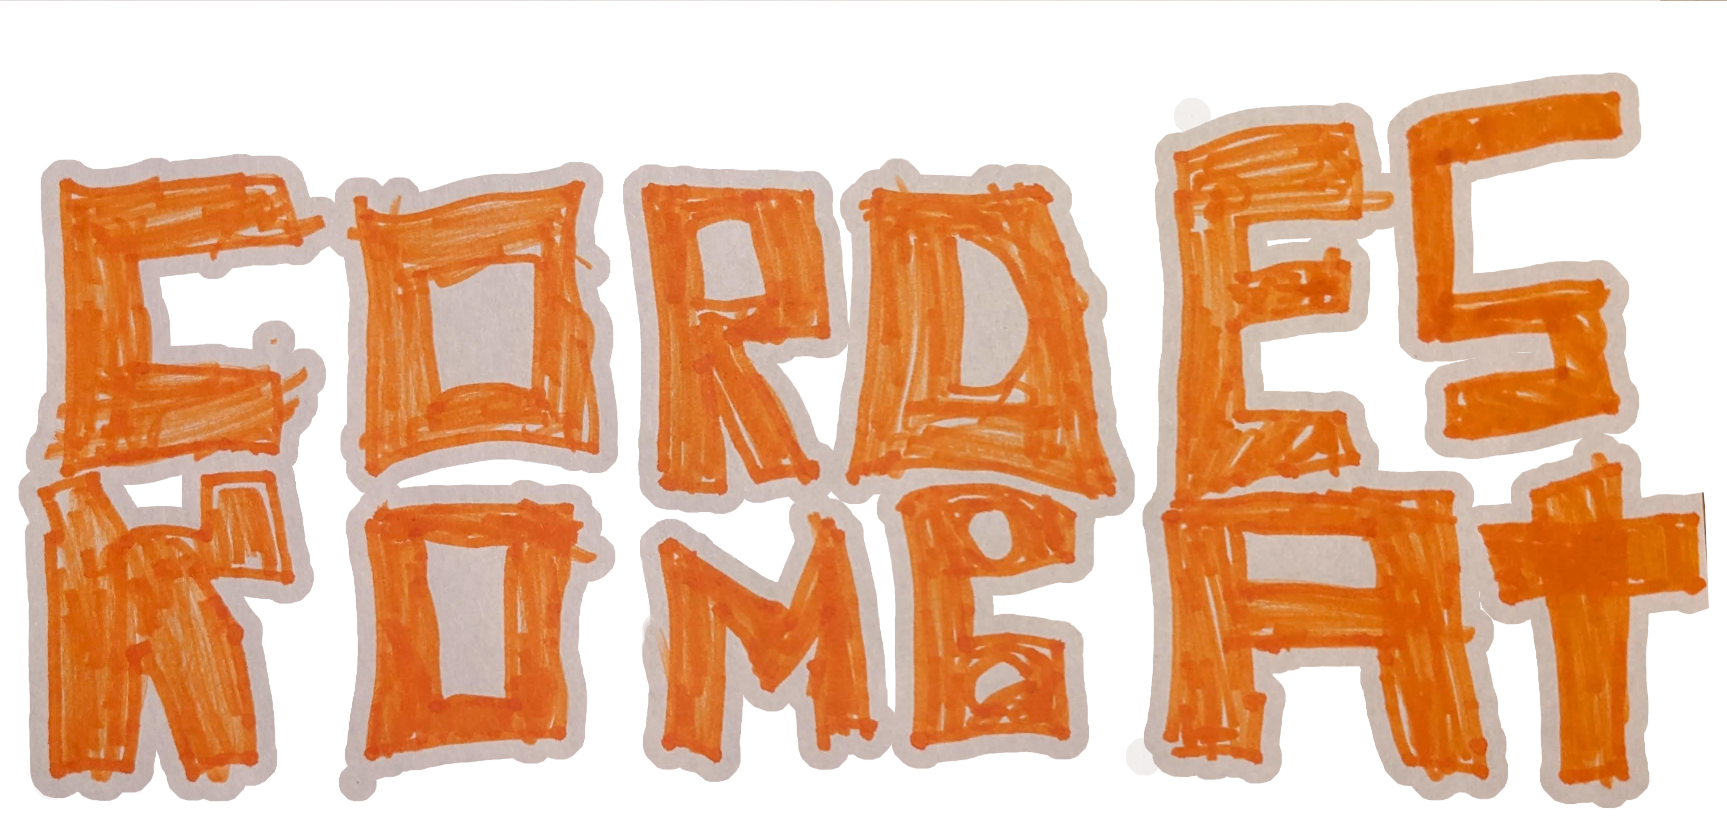 CORDES
KOMBAt